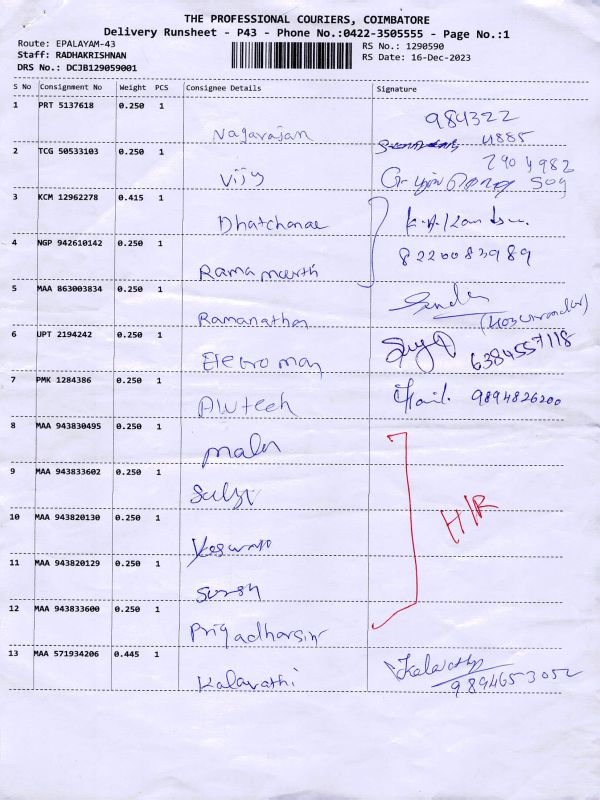 THE PROFESSIONAL COURIERS, COIMBATORE
Delivery Runsheet - P43 - Phone No.:0422-3505555 - Page No.:1
Route: EPALAYAM-43
RS No.: 1290590
Staff: RADHAKRISHNAN
RS Date: 16-Dec-2023
DRS No.: DCJB129059001
S No Consignment No Weight PCS Consignee Details Signature
1 PRT 5137618 0.250 1
984322
Nagarajan
4885
2 TCG 50533103 0.250 1
Vijy
3 KCM 12962278 0.415 1
Dhatchanae
4 NGP 942610142 0.250 1
8220083989
Ramamoorthi
5 MAA 863003834 0.250 1
Ramanathan
6 UPT 2194242 0.250 1
6384557118
Eletro man
7 PMK 1284386 0.250 1
9894826200
Alutech
8 MAA 943830495 0.250 1
mala
9 MAA 943833602 0.250 1
H/R
10 MAA 943820130 0.250 1
11 MAA 943820129 0.250 1
Suresh
12 MAA 943833600 0.250 1
Priyadharsini
13 MAA 571934206 0.445 1
Kalavathi
Kalavathi
9894653052